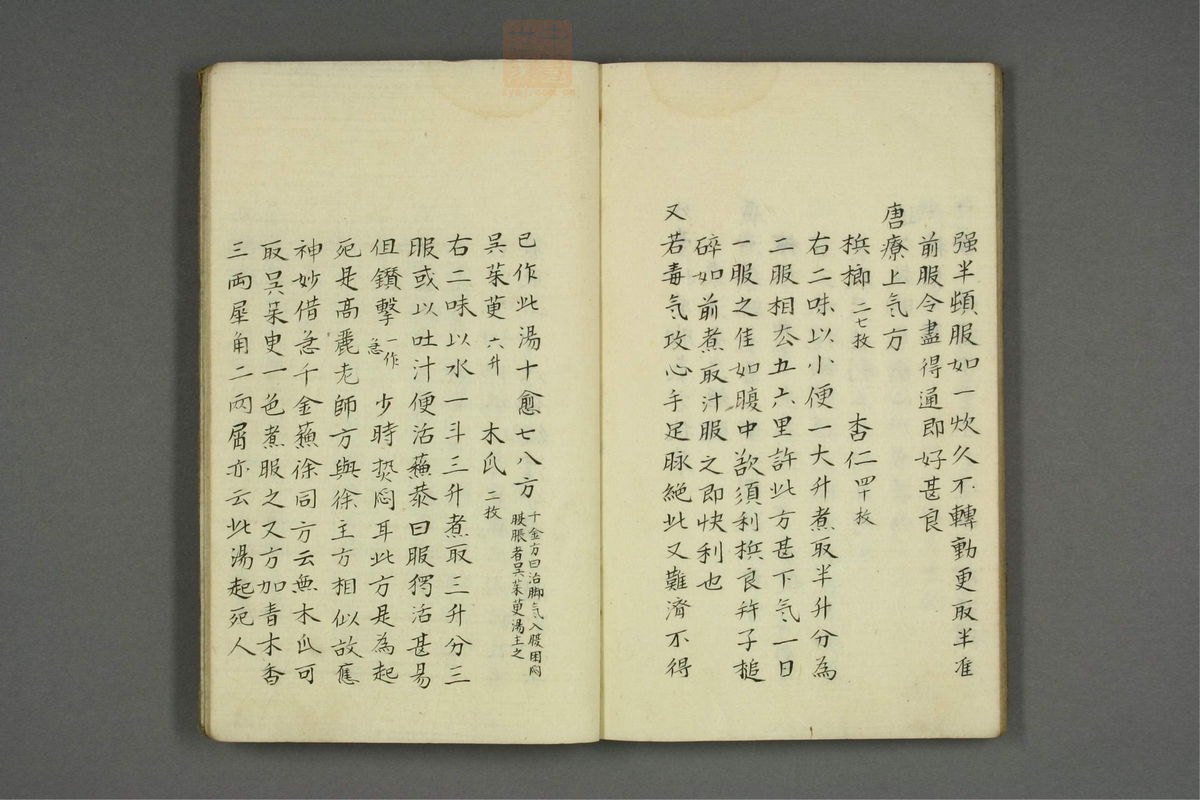 强半頓服如一炊久不轉動更取半准
前服令盡得通即好甚良
唐療上气方
梹榔 二七枚 杏仁 四十枚
右二味以小便一大升煮取半升分為
二服相去五六里許此方甚下气一日
一服之佳如腹中欲須利梹良幷子搥
碎如前煮取汁服之即快利也
又若毒气攻心手足脉絶此又難濟不得
已作此湯十愈七八方 千金方曰治脚气入腹困悶
腹脹者吳茱萸湯主之
吳茱萸 六升 木瓜 二枚
右二味以水一斗三升煮取三升分三
服或以吐汁便活蘇恭曰服獨活甚易
但鑽擊 一作
急 少時熱悶耳此方是為起
死是高麗老師方與徐王方相似故應
神妙借急千金蘓徐同方云無木瓜可
取吳茱萸一色煮服之又方加青木香
三兩犀角二兩屑亦云此湯起死人